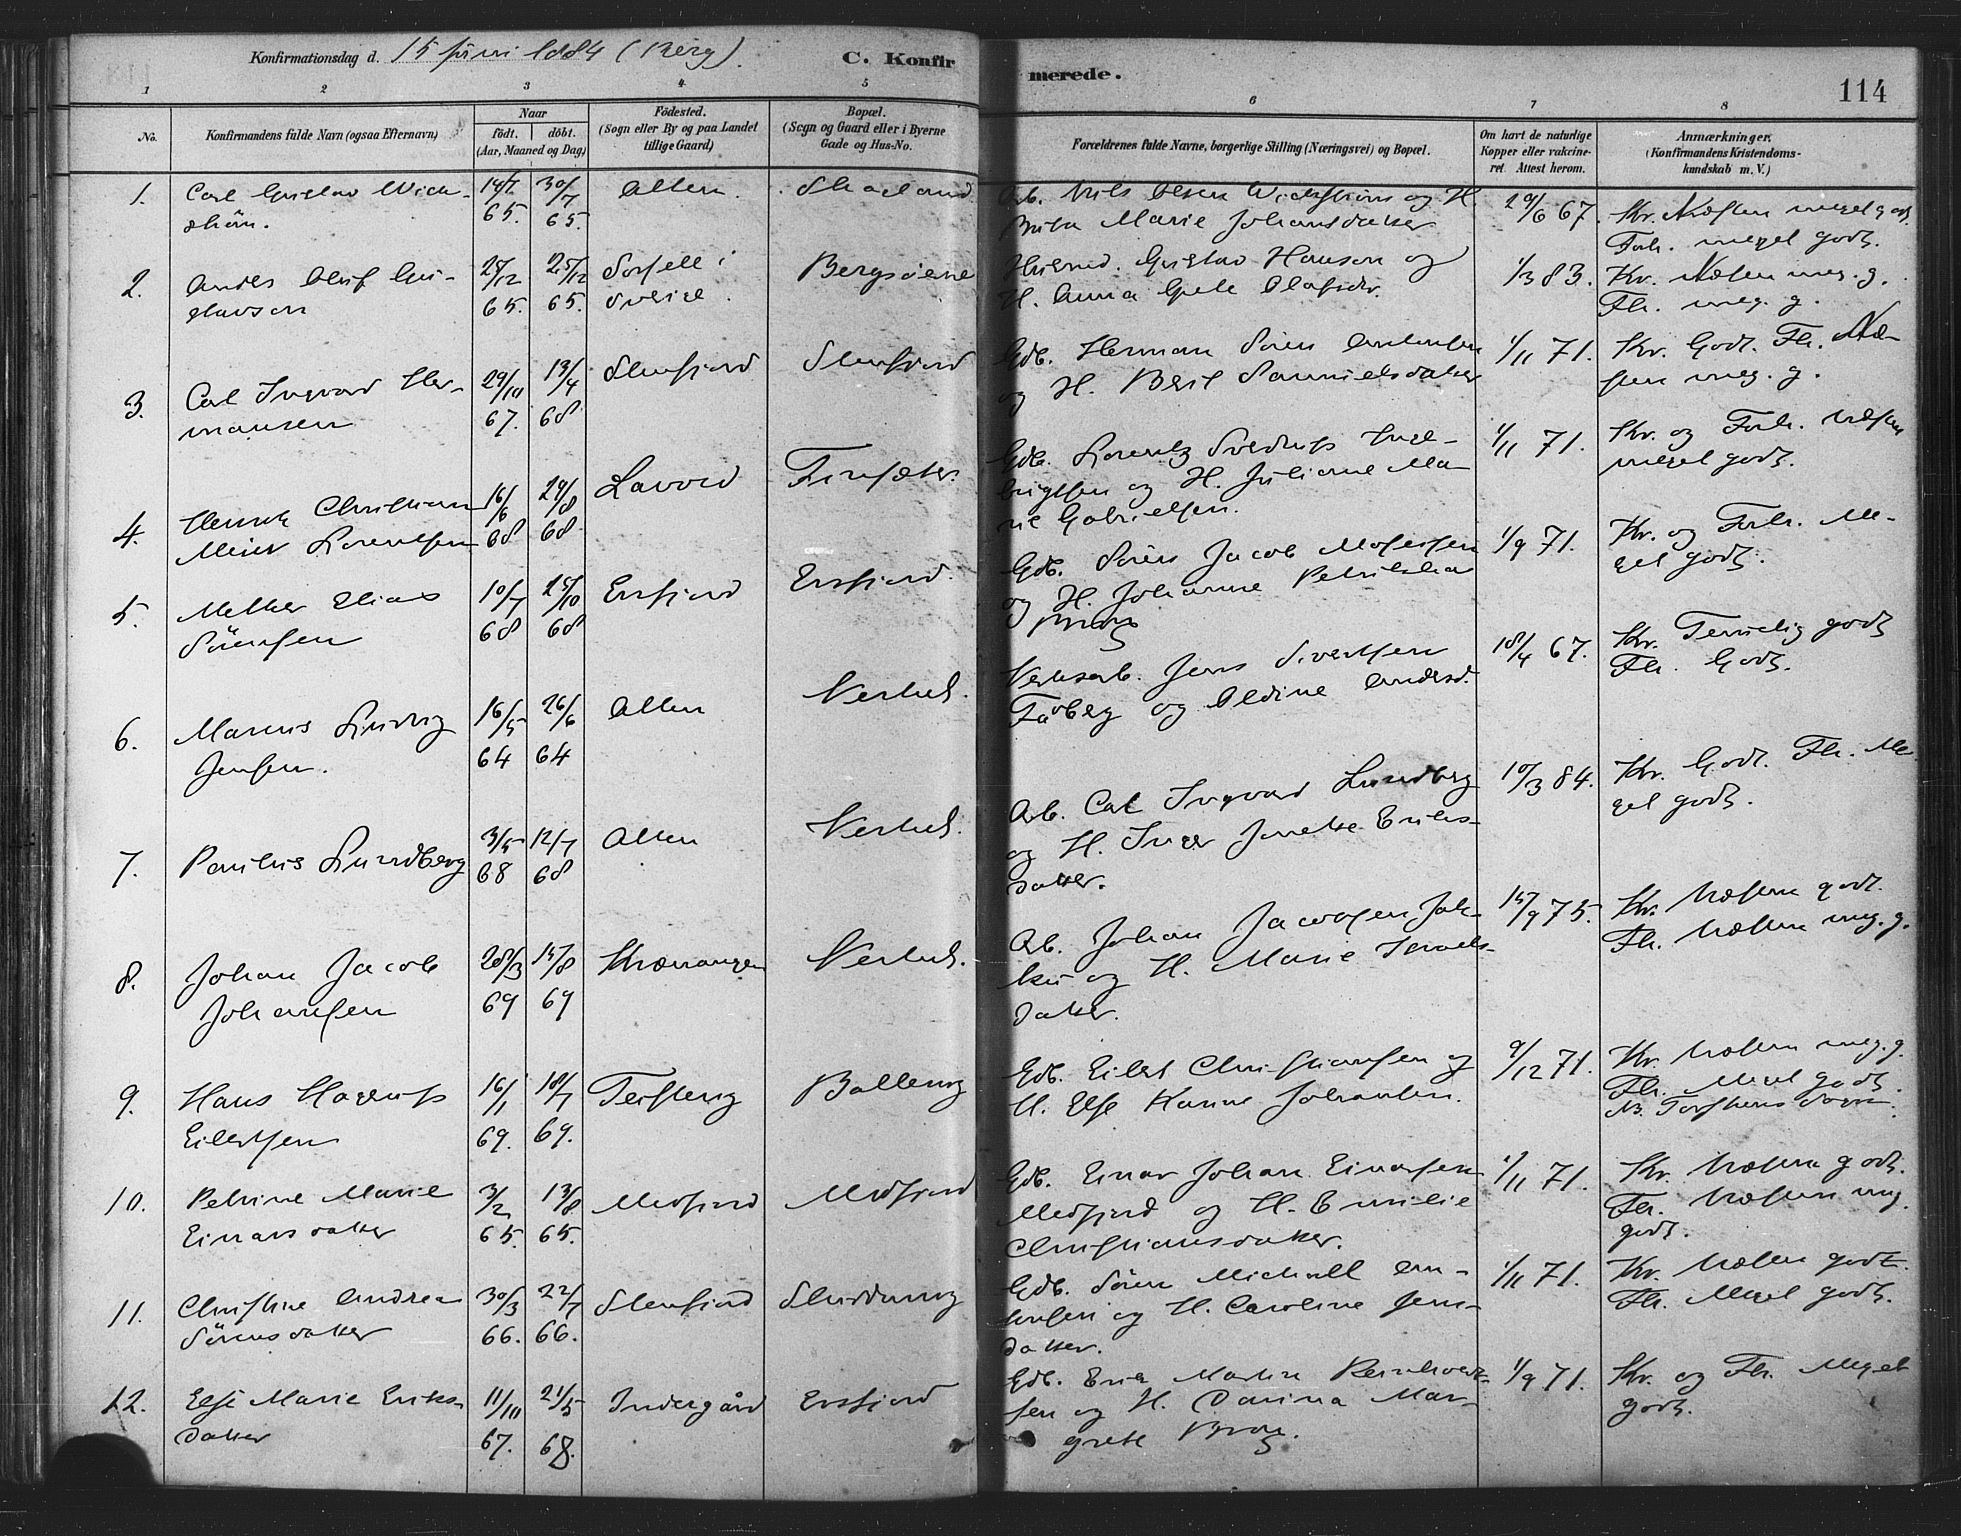 Konfirmationsdag d. 15 juni 1884 (Berg).
C. Konfir merede.
114
1 2 3 4 5 6 7 8
No.
Konfirmandens fulde Navn (ogsaa Efternavn)
Naar
födt. döbt.
(Aar, Maaned og Dag)
Födested.
(Sogn eller By og paa Landet
tillige Gaard)
Bopæl.
(Sogn og Gaard eller i Byerne
Gade og Hus-No.
Forældrenes fulde Navne, borgerlige Stilling (Næringsvei) og Bopæl.
Om havt de naturlige
Kopper eller vakcine-
ret Attest herom.
Anmærkninger,
(Konfirmandens Kristendoms-
kundskab m. V.)
1. Carl Gustav Wick-
ström.
14/7 65. 30/7 65. Alten. Skaland
Arb. Nils Olsen Wickström og H.
Brita Marie Johansdatter
29/6 67.
Kr. Næsten meget godt
Forh. meget godt.
2. Anders Oluf Gu-
stavson
25/12 65. 65. Sorsele i
Sverige. Bergsöerne
Gustav Hanson og
H. Anna Olofsdr.
1/3 83.
Kr. Næsten meg. g.
Flr. meg. g.
3. Carl Ingvard Her-
mansen
29/10 67. 13/4 68 Stensfjord Stensfjord
Gdb. Herman Sören Antonsen
og H. Berit Samuelsdatter
1/11 71.
Kr. Godt. Flr. Næ-
sten meg. g.
4. Henrik Christian
Meier Lorentsen
16/6 68 29/8 68. Lavold Finsæter.
Gdb. Lorentz Sverdrup Inge-
brigtsen og H. Juliane Ma-
rie Gabrielsen.
1/11 71.
Kr. og Forh. næsten
meget godt.
5. Melker Elias
Sörensen
10/7 68 25/10 68 Ersfjord Ersfjord.
Gdb. Sören Jacob Mosessen
og H. Johanne Petrikka
Brox
1/9 71.
Kr. og Forh. Me-
get godt.
6. Marcus Ludvig
Jensen.
16/5 64 26/6 64 Alten Verket.
Verksarb. Jens Sivertsen
Faaberg og Oldine Andersd.
18/4 67.
Kr. Temmelig godt
Flr. Godt.
7. Paulus Lundberg
3/5 68 12/7 68 Alten Verket.
Arb. Carl Ingvard Lundberg
og H. Inger Jonette Eriks-
datter.
10/3 84.
Kr. Godt. Flr. Me
get godt.
8. Johan Jacob
Johansen
28/3 69 15/8 69 Kvænangen Verket.
Arb. Johan Jacobsen
og H. Marie Israels-
datter.
15/9 75.
Kr. Næsten godt.
Flr. Næsten meg. g.
9. Hans Hagerup
Eilertsen
16/1 69. 18/7 69. Teisteng Ballesvg
Gdb. Eilert Christiansen og
H. Else Karine Johansen.
9/12 71.
Kr. Næsten meg. g.
Flr. Meget godt.
10. Petrine Marie
Einarsdatter
3/2 65. 13/8 65. Medfjord Medfjord
Gdb. Einar Johan Einarsen
Medfjord og H. Emilie
Christiansdatter.
1/11 71.
Kr. Næsten godt.
Flr. Næsten meg.
godt.
11. Christine Andrea
Sörensdatter
30/3 66. 22/7 66. Stensfjord
Gdb. Sören Michall An-
tonsen og H. Caroline Jens-
datter.
1/11 71.
Kr. Næsten godt.
Flr. Meget godt.
12. Else Marie Eriks-
datter
11/10 67. 21/5 68. Indergård Ersfjord
Gdb. Erik Martin Reinholdt-
sen og H. Dorina Mar-
grete Brox.
1/9 71.
Kr. og Flr. Meget
godt.